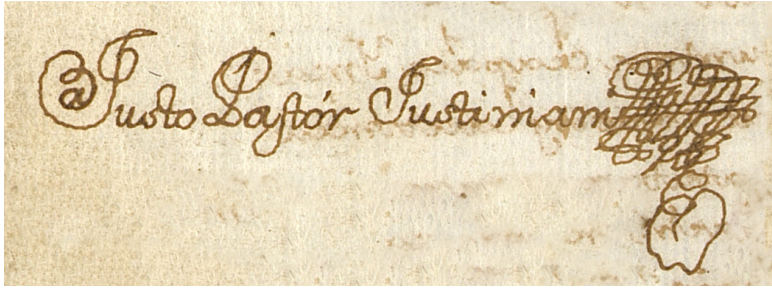 Justo Pastór Justiniam